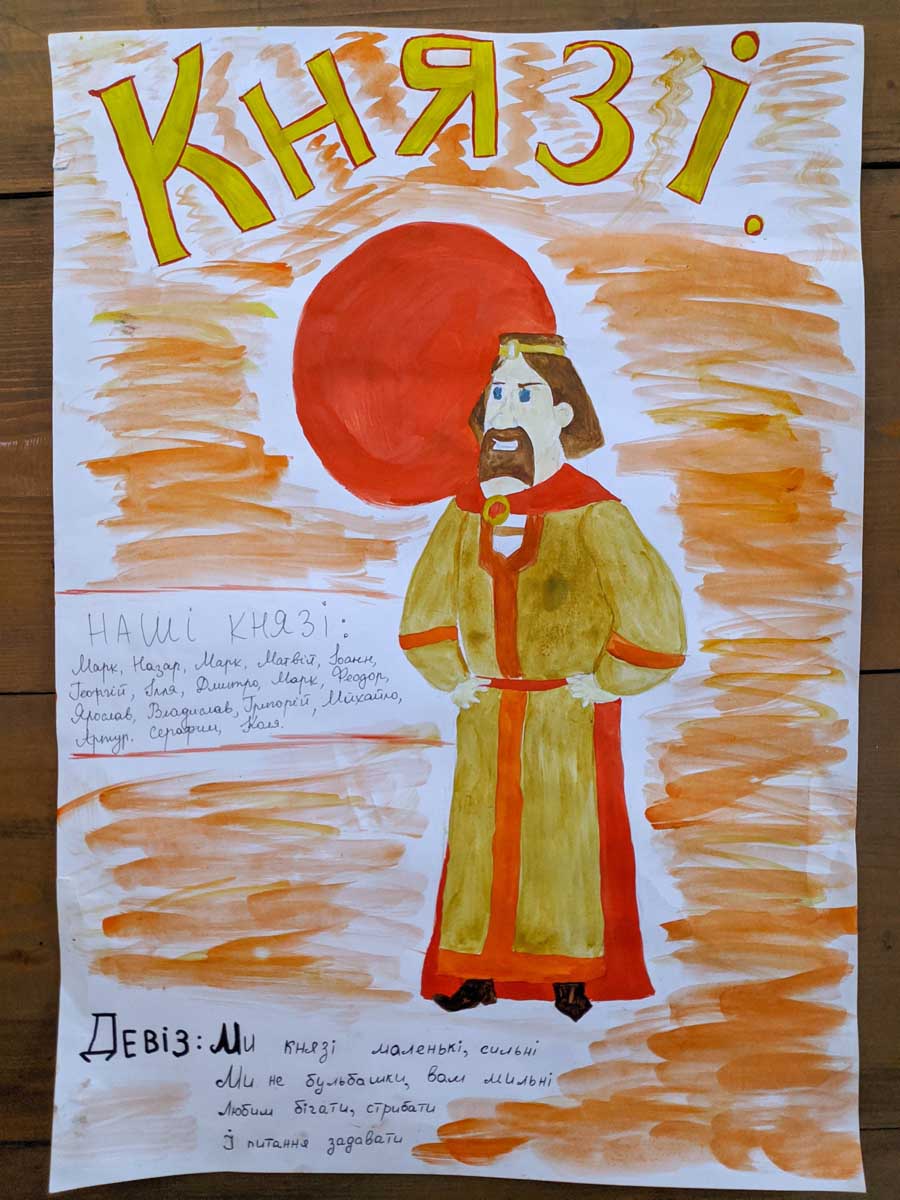 КНЯЗІ.
НАШІ КНЯЗІ:
Марк, Назар, Марк, Матвій, Іоанн,
Георгій, Ілля, Дмитро, Марк, Феодор,
Ярослав, Владислав, Григорій, Михайло,
Артур. Серафим, Коля.
ДЕВІЗ: Ми князі маленькі, сильні
Ми не бульбашки, вам мильні
Любим бігати, стрибати
Ї питання задавати